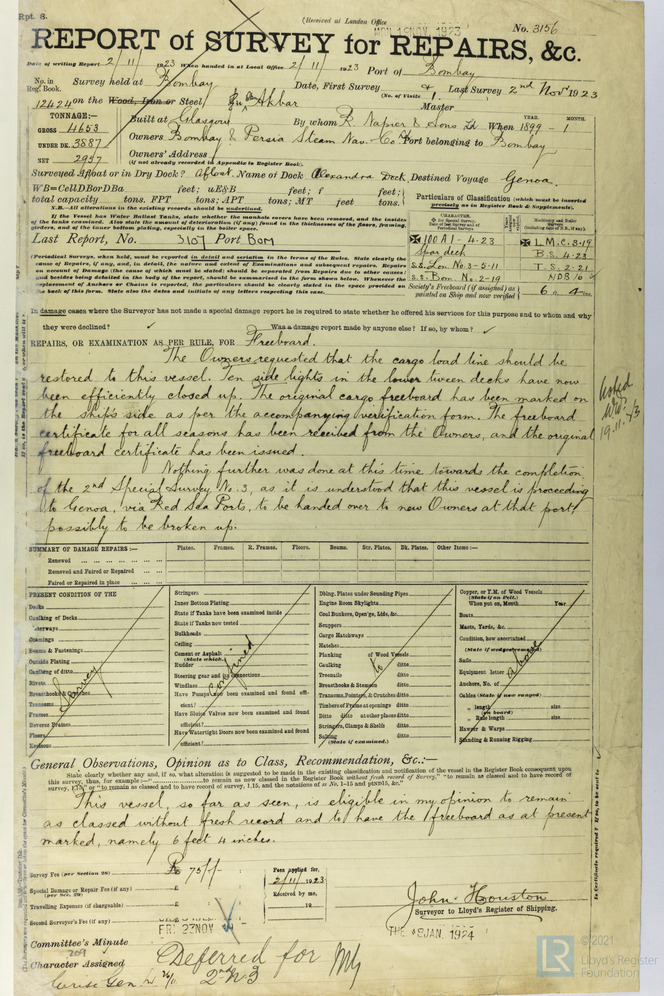 Rpt. 8.
(Received at London Office
MON 19 NOV 1923
No. 3156
REPORT of SURVEY for REPAIRS, &c.
Date of writing Report 2/11/1923 When handed in at Local Office 2/11/1923 Port of Bombay
No. in Reg. Book. Survey held at Bombay Date, First Survey Last Survey 2nd Novr 1923
(No. of Visits 1.)
12424 on the Wood, Iron or Steel, Akbar Master
TONNAGE:— Built at Glasgow By whom R. Napier & Sons Ld When 1899 - 1
YEAR. MONTH.
GROSS 4653
UNDER DK. 3887
NET 2957
Owners Bombay & Persia Steam Nav. Co. Ld Port belonging to Bombay
Owners' Address
(if not already recorded in Appendix to Register Book).
Surveyed Afloat or in Dry Dock? Afloat. Name of Dock Alexandra Dock Destined Voyage Genoa.
WB=CellDBorDBa feet; uE&B feet; f feet;
total capacity tons. FPT tons; APT tons; MT feet tons.
N.B.—All alterations in the existing records should be underlined.
Particulars of Classification (which must be inserted precisely as in Register Book & Supplements).
Last Report, No. 3107 Port Bom
100 A1 - 4.23
Spar deck
S.S. Lon. No 3 - 5.11
S.S. Bom. No. 2 - 19
L.M.C. 8.19
B.S. 4.23
T.S. 2.21
NDB
Society's Freeboard (if assigned) as painted on Ship and now verified
6 4
(Periodical Surveys, when held, must be reported in detail and seriatim in the terms of the Rules. State clearly the cause of Repairs, if any, and, in detail, the nature and extent of Examinations and subsequent repairs.
In damage cases where the Surveyor has not made a special damage report he is required to state whether he offered his services for this purpose and to whom and why
they were declined? ✓ Was a damage report made by anyone else? If so, by whom? ✓
REPAIRS, OR EXAMINATION AS PER RULE, FOR Freeboard.
The Owners requested that the cargo load line should be
restored to this vessel. Ten side lights in the lower tween decks have now
been efficiently closed up. The original cargo freeboard has been marked on
the ship's side as per the accompanying verification form. The freeboard
certificate for all seasons has been received from the Owners, and the original
freeboard certificate has been issued.
Nothing further was done at this time towards the completion
of the 2nd Special Survey No. 3, as it is understood that this vessel is proceeding
to Genoa, via Red Sea Ports, to be handed over to new Owners at that port
possibly to be broken up.
Noted
19.11.23
SUMMARY OF DAMAGE REPAIRS:— Plates. Frames. R. Frames. Floors. Beams. Str. Plates. Dk. Plates. Other Items:—
Renewed
Removed and Faired or Repaired
Faired or Repaired in place
PRESENT CONDITION OF THE
Decks
Caulking of Decks
Waterways
Coamings
Beams & Fastenings
Outside Plating
Caulking of ditto
Rivets
Breasthooks & Crutches
Transoms
Frames
Reverse Frames
Floors
Keelsons
Stringers
Inner Bottom Plating
State if Tanks have been examined inside
State if Tanks now tested
Bulkheads
Ceiling
Cement or Asphalt
(State which.)
Rudder
Steering gear and its connections
Windlass
Have Pumps now been examined and found efficient?
Have Sluice Valves now been examined and found efficient?
Have Watertight Doors now been examined and found efficient?
Dbling. Plates under Sounding Pipes
Engine Room Skylights
Coal Bunkers, Open'gs, Lids, &c.
Scuppers
Cargo Hatchways
Hatches
Planking of Wood Vessels
Caulking ditto
Treenails ditto
Breasthooks & Stemson ditto
Transoms, Pointers, & Crutches ditto
Timbers of Frame at openings ditto
Ditto ditto at other places ditto
Stringers, Clamps & Shelfs ditto
Salting ditto
(State if examined.)
Copper, or Y.M. of Wood Vessels
(State if on Felt.)
When put on, Month Year
Boats
Masts, Yards, &c.
Condition, how ascertained
(State if wedges removed)
Sails
Equipment letter
Anchors, No. of
Cables (State if now ranged)
" length size
(on board)
" Rule length size
Hawser & Warps
Standing & Running Rigging
Survey confined to above
General Observations, Opinion as to Class, Recommendation, &c.:—
State clearly whether any and, if so, what alteration is suggested to be made in the existing classification and notification of the vessel in the Register Book consequent upon
This vessel, so far as seen, is eligible in my opinion to remain
as classed without fresh record and to have the freeboard as at present
marked, namely 6 feet 4 inches.
Survey Fee (per Section 28) Rs 75/-
Special Damage or Repair Fee (if any) £
(per Sec. 28.)
Travelling Expenses (if chargeable) £
Second Surveyor's Fee (if any) £
Fees applied for,
2/11/1923
Received by me,
19
John Houston
Surveyor to Lloyd's Register of Shipping.
Committee's Minute
FRI 23 NOV
TUE 8 JAN. 1924
Character Assigned
Deferred for
2nd No 3
© 2021
Lloyd's Register
Foundation